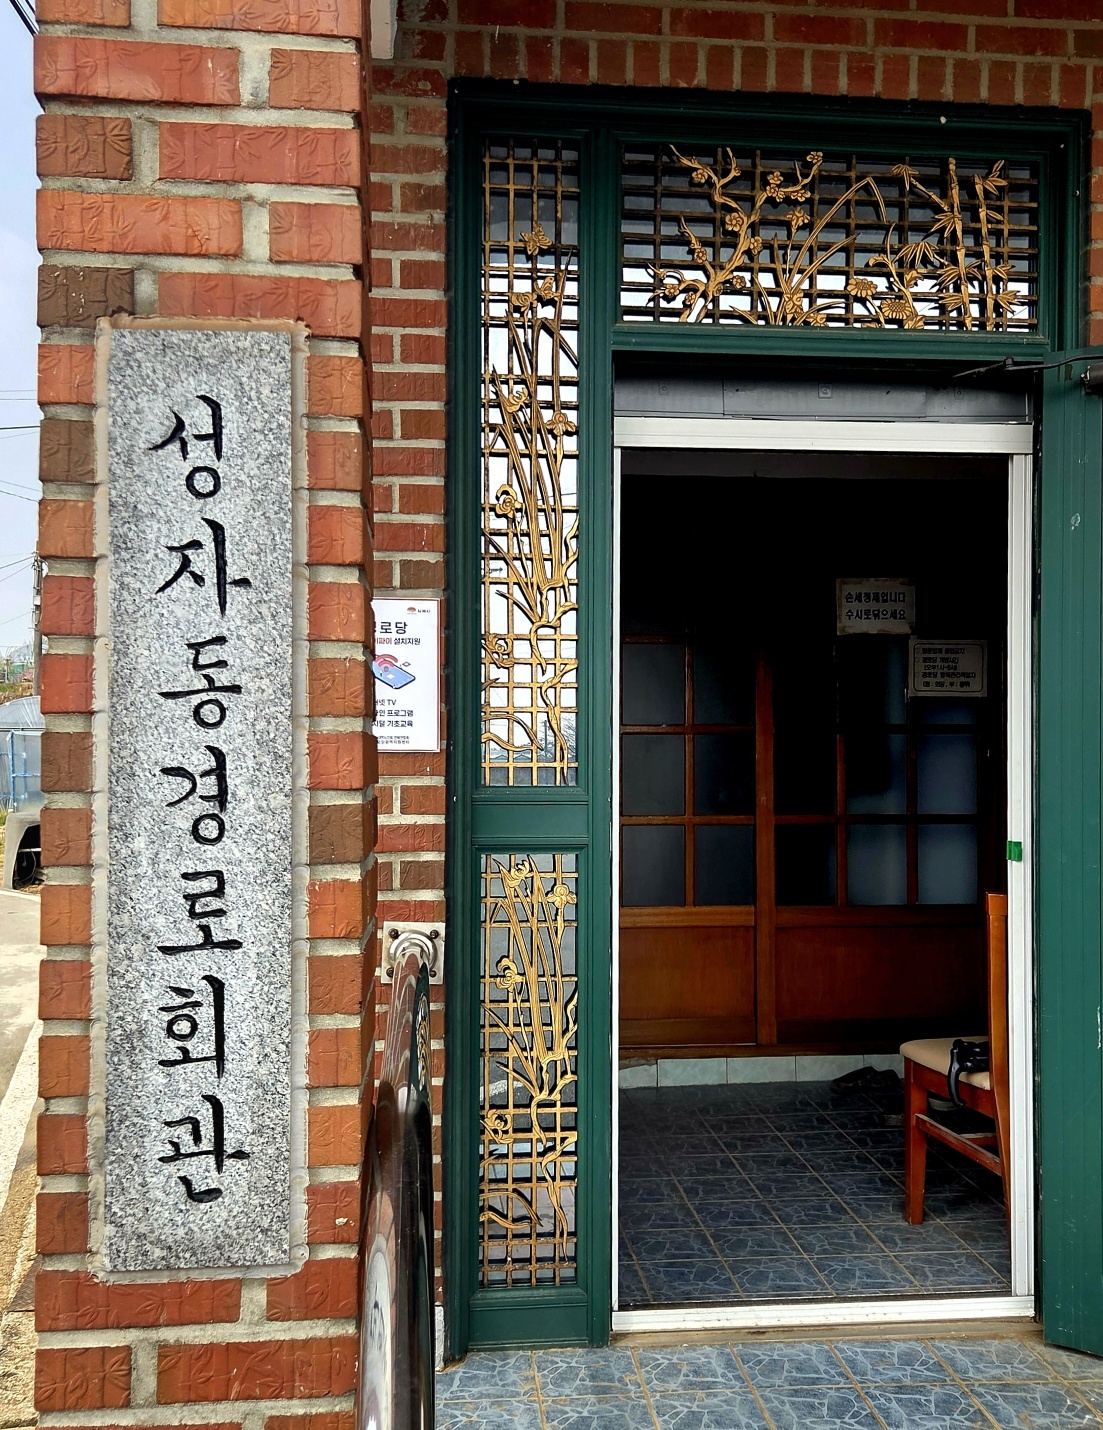 성자동경로회관
로당
이파이 설치지원
넷 TV
인 프로그램
지털 기초교육
손세정제입니다
수시로닦으세요